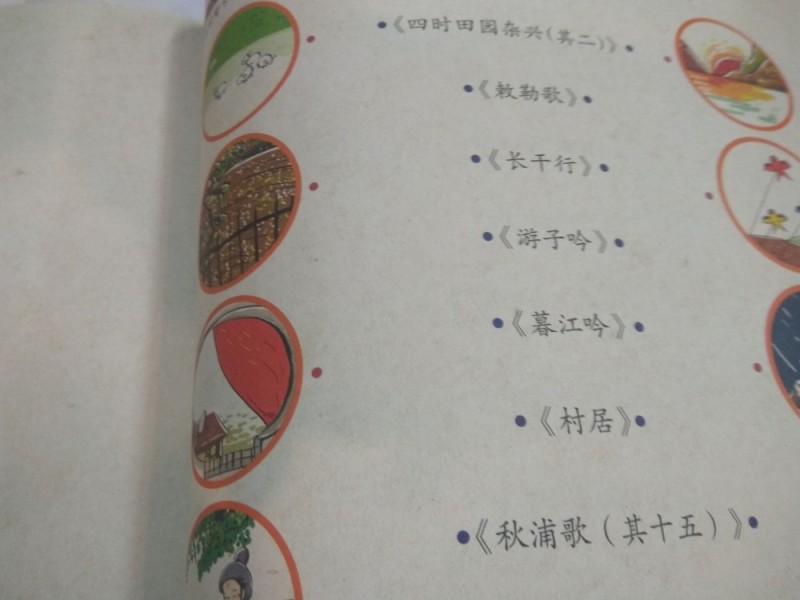 《四时田园杂兴(其二)》
《敕勒歌》
《长干行》
《游子吟》
《暮江吟》
《村居》
《秋浦歌(其十五)》